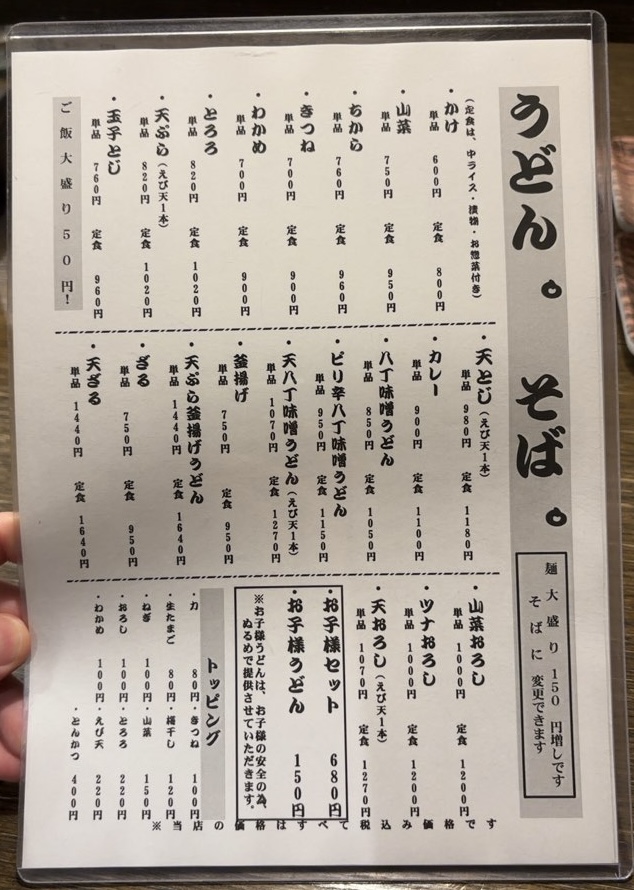 うどん。そば。
麺大盛り150円増しです
そばに変更できます
(定食は、中ライス・漬物・お惣菜付き)
・かけ
単品 600円 定食 800円
・山菜
単品 750円 定食 950円
・ちから
単品 760円 定食 960円
・きつね
単品 700円 定食 900円
・わかめ
単品 700円 定食 900円
・とろろ
単品 820円 定食 1020円
・天ぷら(えび天1本)
単品 820円 定食 1020円
・玉子とじ
単品 760円 定食 960円
ご飯大盛り50円!
・天とじ(えび天1本)
単品 980円 定食 1180円
・カレー
単品 900円 定食 1100円
・八丁味噌うどん
単品 850円 定食 1050円
・ピリ辛八丁味噌うどん
単品 950円 定食 1150円
・天八丁味噌うどん(えび天1本)
単品 1070円 定食 1270円
・釜揚げ
単品 750円 定食 950円
・天ぷら釜揚げうどん
単品 1440円 定食 1640円
・ざる
単品 750円 定食 950円
・天ざる
単品 1440円 定食 1640円
・山菜おろし
単品 1000円 定食 1200円
・ツナおろし
単品 1000円 定食 1200円
・天おろし(えび天1本)
単品 1070円 定食 1270円
・お子様セット 680円
・お子様うどん 150円
※お子様うどんは、お子様の安全の為、
ぬるめで提供させていただきます。
トッピング
・力 80円 ・きつね 100円
・生たまご 80円 ・梅干し 120円
・ねぎ 100円 ・山菜 150円
・おろし 100円 ・とろろ 220円
・わかめ 100円 ・えび天 220円
・とんかつ 400円
※当店の価格はすべて税込み価格です